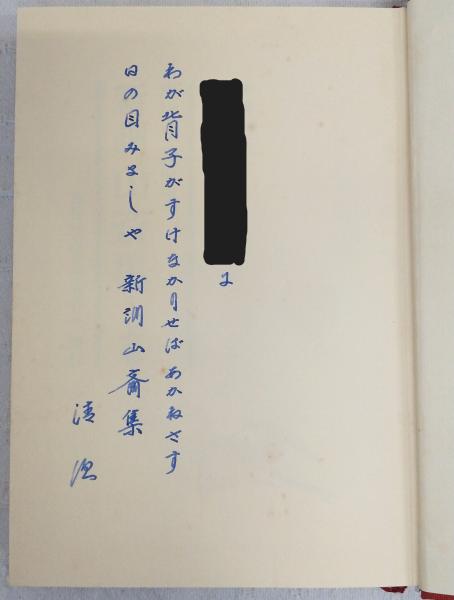 わが背子がすけなかりせばあかねさす
日の目みましや　新訓山斎集
清